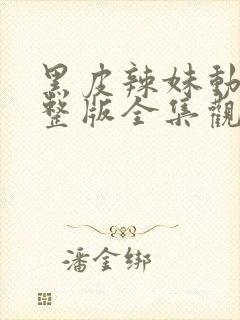 黑皮辣妹動
整版全集觀
潘金綁